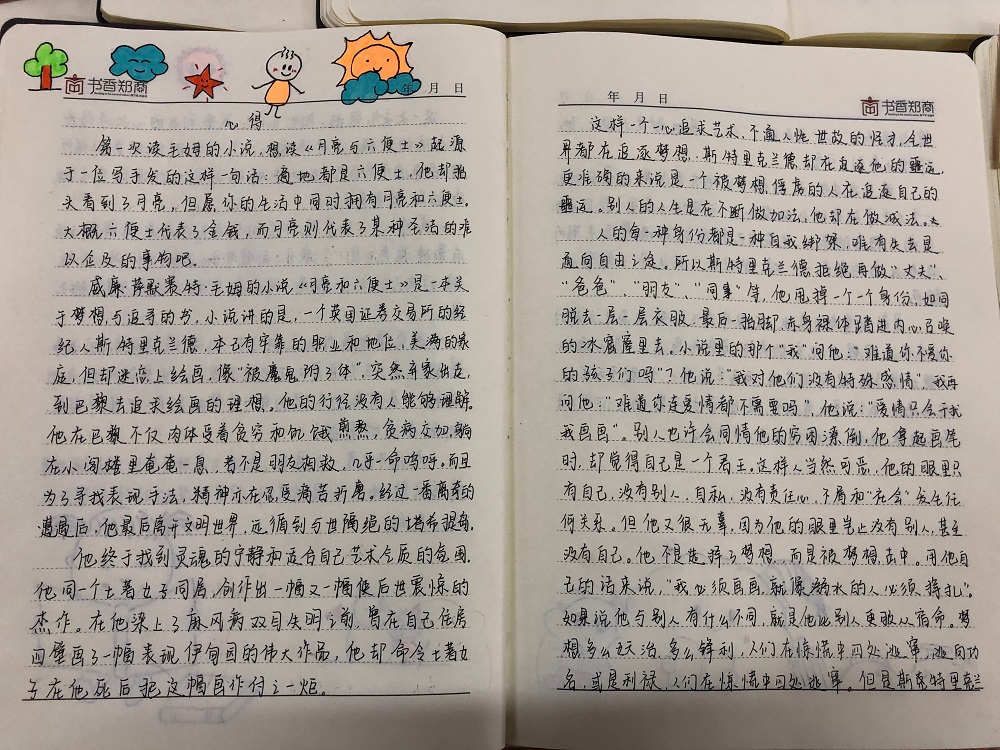 书香郑商
年 月 日
心得
第一次读毛姆的小说,想读《月亮与六便士》起源
于一位写手发的这样一句话:满地都是六便士,他却抬
头看到了月亮,但愿你的生活中同时拥有月亮和六便士.
大概六便士代表了金钱,而月亮则代表了某种圣洁的难
以企及的事物吧.
威廉·萨默赛特·毛姆的小说《月亮和六便士》是一本关
于梦想与追寻的书,小说讲的是,一个英国证券交易所的经
纪人斯特里克兰德,本已有牢靠的职业和地位,美满的家
庭,但却迷恋上绘画,像“被魔鬼附了体”,突然弃家出走,
到巴黎去追求绘画的理想。他的行径没有人能够理解。
他在巴黎不仅肉体受着贫穷和饥饿煎熬,贫病交加,躺
在小阁楼里奄奄一息,若不是朋友相救,几乎一命呜呼。而且
为了寻找表现手法,精神亦在忍受痛苦折磨。经过一番离奇的
遭遇后,他最后离开文明世界,远循到与世隔绝的塔希提岛.
他终于找到灵魂的宁静和适合自己艺术气质的氛围.
他同一个土著女子同居,创作出一幅又一幅使后世震惊的
杰作。在他染上了麻风病双目失明之前,曾在自己住房
四壁画了一幅表现伊甸园的伟大作品,他却命令土著女
子在他死后把这幅画作付之一炬.
年 月 日
书香郑商
这样一个一心追求艺术,不通人性世故的怪才,全世
界都在追逐梦想,斯特里克兰德却在追逐他的噩运,
更准确的来说是一个被梦想俘虏的人在追逐自己的
噩运。别人的人生是在不断做加法,他却在做减法。
人的每一种身份都是一种自我绑架,唯有失去是
通向自由之途。所以斯特里克兰德拒绝再做“丈夫”、
“爸爸”、“朋友”、“同事”等,他甩掉一个一个身份,如同
脱去一层一层衣服,最后一抬脚,赤身裸体踏进内心召唤
的冰窟窿里去。小说里的那个“我”问他:“难道你不爱你
的孩子们吗”?他说:“我对他们没有特殊感情”,我再
问他:“难道你连爱情都不需要吗”,他说:“爱情只会干扰
我画画”。别人也许会同情他的穷困潦倒,他拿起画笔
时,却觉得自己是一个君王。这样人当然可恶,他的眼里只
有自己,没有别人,自私,没有责任心,不屑和“社会”发生任
何关系。但他又很无辜,因为他的眼里岂止没有别人,甚至
没有自己。他不是选择了梦想,而是被梦想击中。用他自
己的话来说,“我必须画画,就像溺水的人必须挣扎”。
如果说他与别人有什么不同,就是他比别人更敢从宿命。梦
想多么天治,多么锋利,人们在惊慌中四处逃窜,逃向功
名,或是利禄,人们在惊慌中四处逃窜。但是斯特里克兰